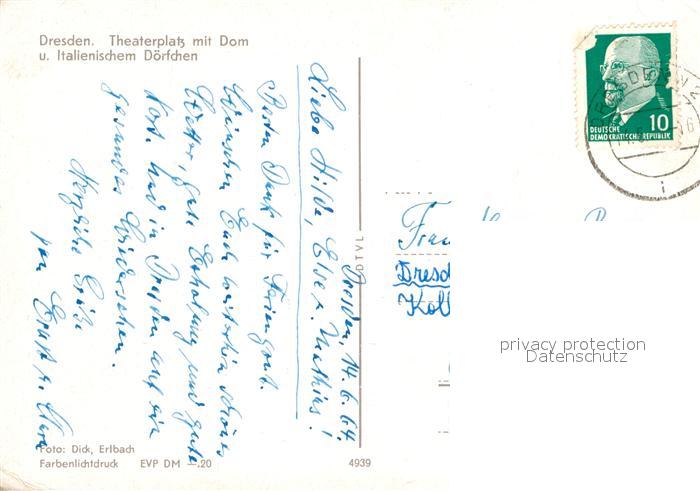 Dresden. Theaterplatz mit Dom
u. Italienischem Dörfchen
Dresden, 14.6.64.
Liebe Hilde, Else u. Mathias!
Besten Dank für Feriengast.
Wünschen Euch weiterhin schönes
Wetter, gute Erholung und gute
Kost. Und in Dresden auf ein
gesundes Wiedersehen.
Herzliche Grüße
von Ernst u.
Foto: Dick, Erlbach
Farbenlichtdruck EVP DM –.20
4939
DTVL
10
DEUTSCHE
DEMOKRATISCHE REPUBLIK
DRESDEN
i
Frau
Dresd
Köll
privacy protection
Datenschutz